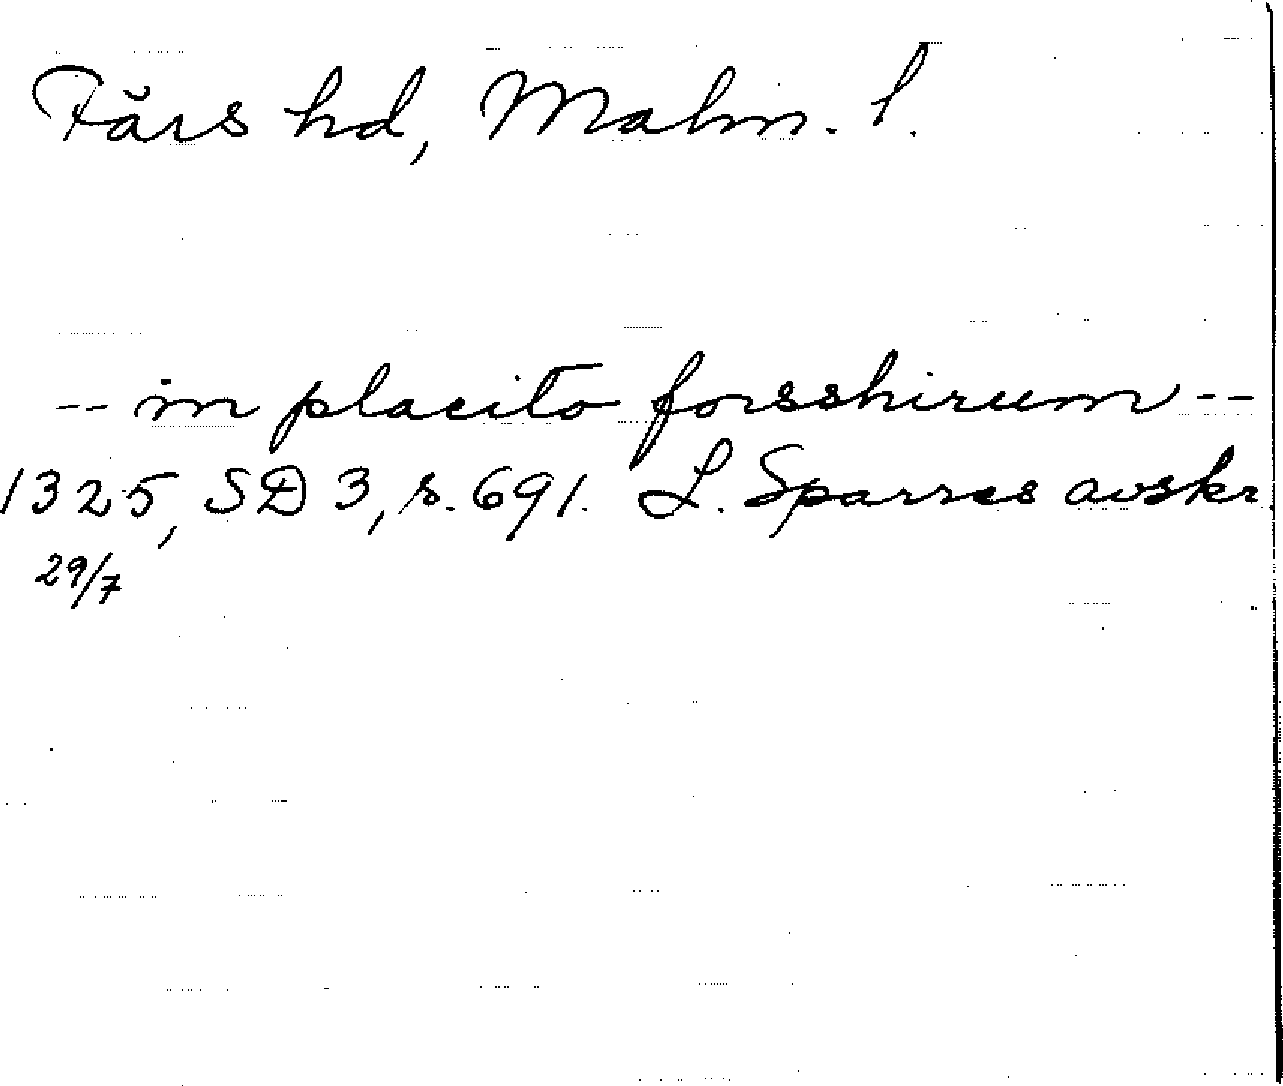 Färs hd, Malm. l.
-- in placito forsshirum --
1325, SD 3, s. 691. L. Sparres avskr.
29/7